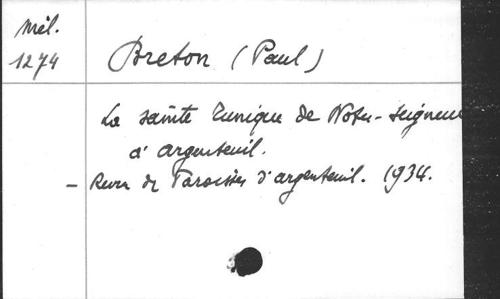 Mél.
1274
Breton (Paul)
La sainte Tunique de Notre-Seigneur
à Argenteuil.
- Revue de Paroisses d'Argenteuil. 1934.